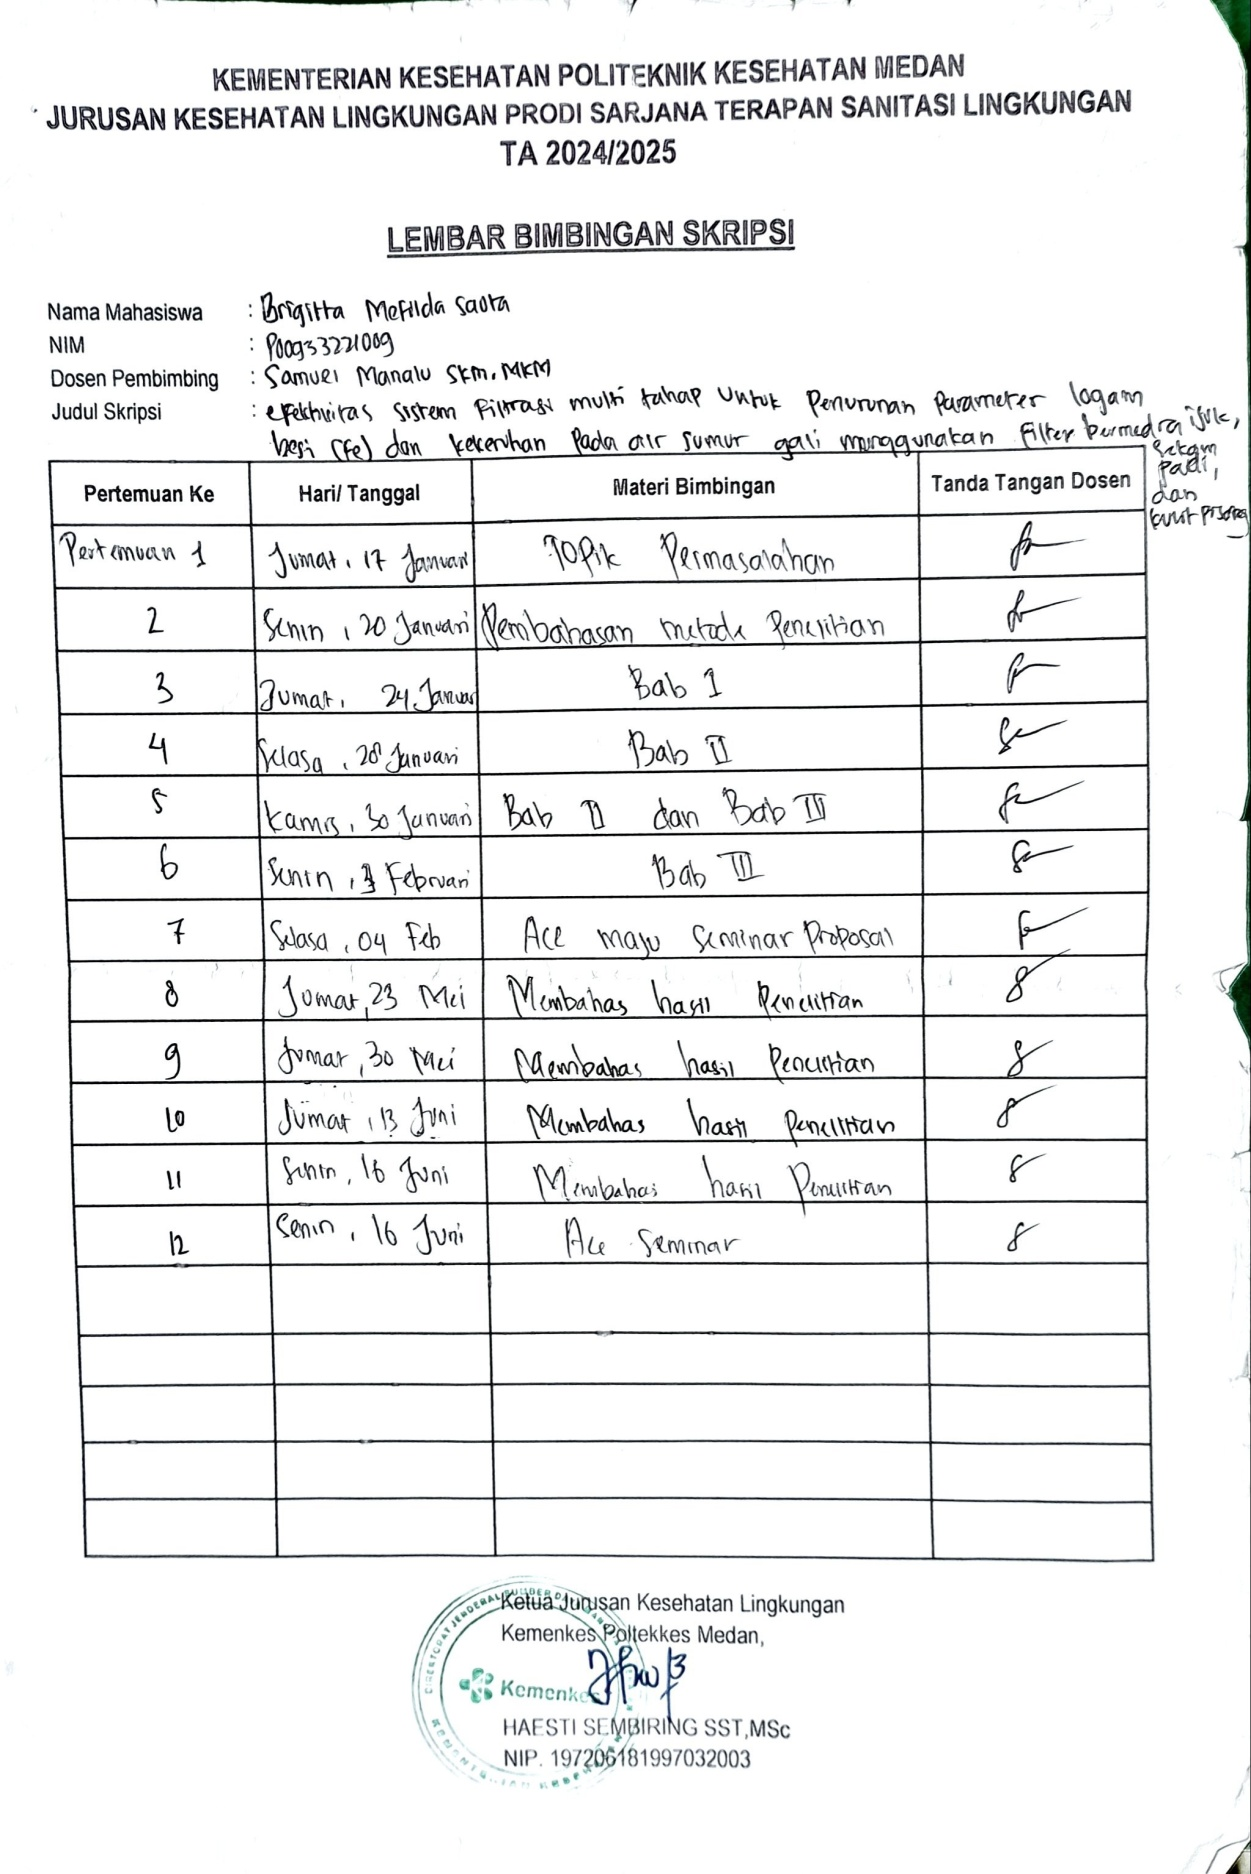 KEMENTERIAN KESEHATAN POLITEKNIK KESEHATAN MEDAN
JURUSAN KESEHATAN LINGKUNGAN PRODI SARJANA TERAPAN SANITASI LINGKUNGAN
TA 2024/2025
LEMBAR BIMBINGAN SKRIPSI
Nama Mahasiswa : Brigitta Metilda Saota
NIM : P00933221009
Dosen Pembimbing : Samuel Manalu SKM, MKM
Judul Skripsi : efektivitas Sistem Filtrasi multi tahap Untuk Penurunan Parameter logam
besi (Fe) dan kekeruhan Pada air sumur gali menggunakan Filter bermedia ijuk,
Sekam
padi,
dan
kulit pisang
Pertemuan Ke Hari/ Tanggal Materi Bimbingan Tanda Tangan Dosen
Pertemuan 1 Jumat, 17 Januari Topik Permasalahan
2 Senin, 20 Januari Pembahasan metode Penelitian
3 Jumat, 24 Januari Bab 1
4 Selasa, 28 Januari Bab II
5 Kamis, 30 Januari Bab II dan Bab III
6 Senin, 3 Februari Bab III
7 Selasa, 04 Feb Acc maju Seminar Proposal
8 Jumat, 23 Mei Membahas hasil Penelitian
9 Jumat, 30 Mei Membahas hasil Penelitian
10 Jumat, 13 Juni Membahas hasil Penelitian
11 Senin, 16 Juni Membahas hasil Penelitian
12 Senin, 16 Juni Acc Seminar
Ketua Jurusan Kesehatan Lingkungan
Kemenkes Poltekkes Medan,
Kemenkes
HAESTI SEMBIRING SST,MSc
NIP. 197206181997032003